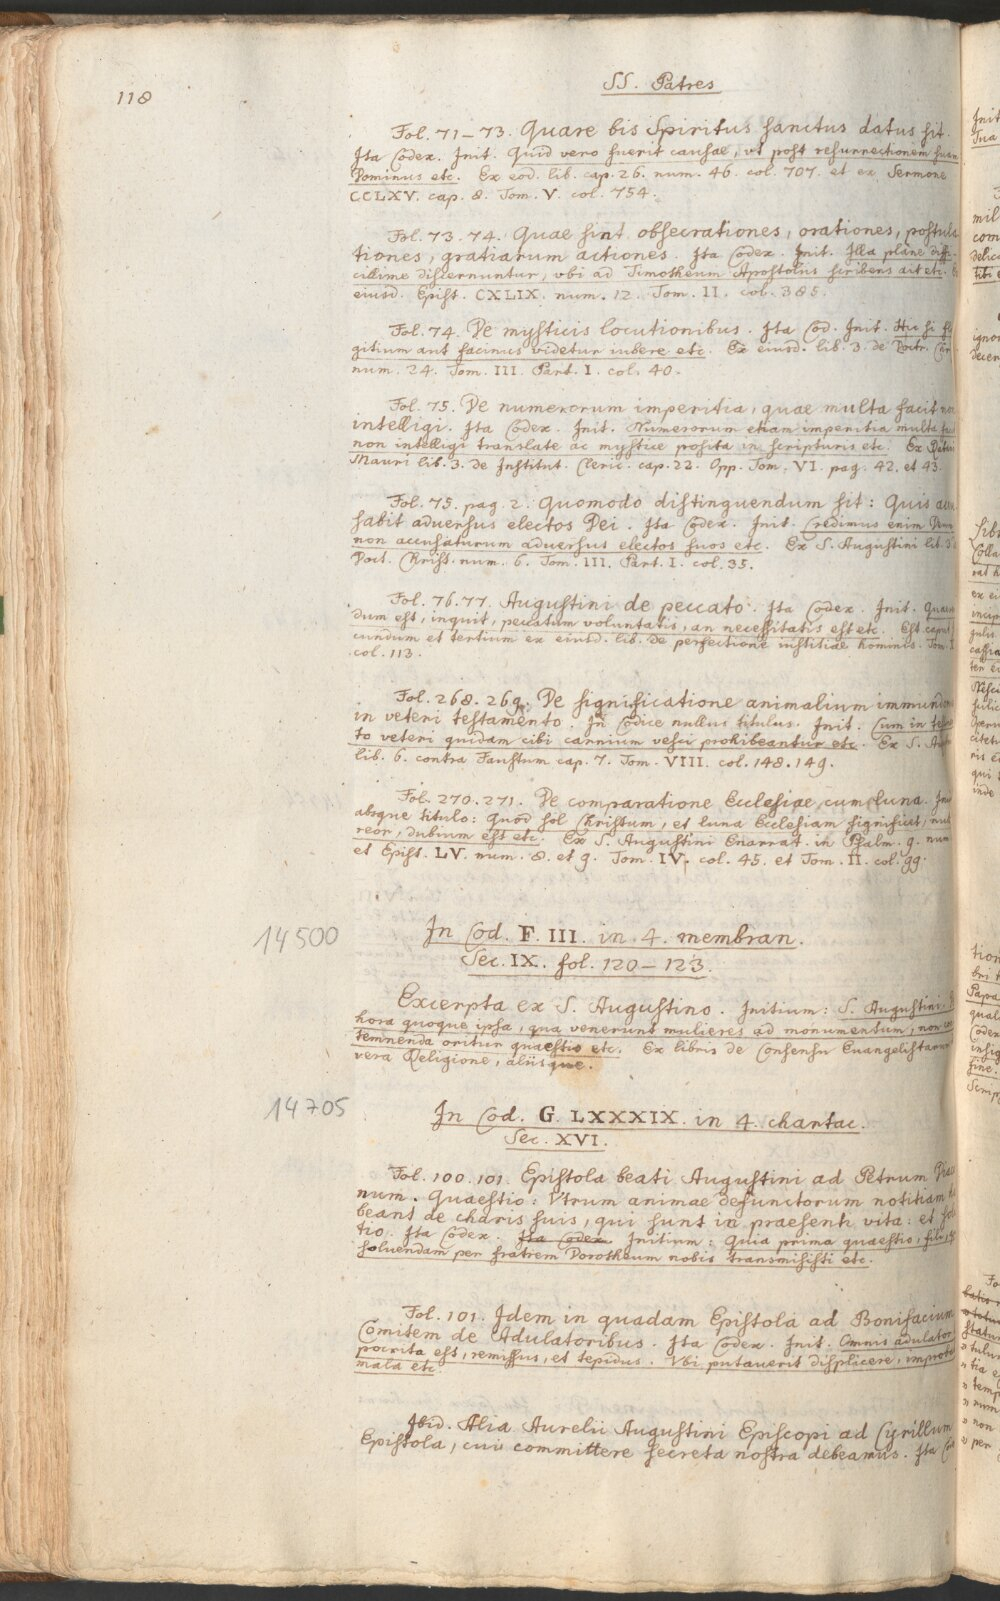 118
SS. Patres
Fol. 71–73. Quare bis Spiritus sanctus datus sit.
Ita Codex. Init. Quid vero fuerit causae, ut post resurrectionem suam
Dominus etc. Ex eod. lib. cap. 26. num. 46. col. 707. et ex Sermone
CCLXV. cap. 8. Tom. V. col. 754.
Fol. 73. 74. Quae sint obsecrationes, orationes, postula
tiones, gratiarum actiones. Ita Codex. Init. Illa plane diffi-
cillime discernuntur, vbi ad Timotheum Apostolus scribens ait etc.
eiusd. Epist. CXLIX. num. 12. Tom. II. col. 385.
Fol. 74. De mysticis locutionibus. Ita Cod. Init. Hic si fla
gitium aut facinus videtur iubere etc. Ex eiusd. lib. 3. de Doctr. Chr
num. 24. Tom. III. Part. I. col. 40.
Fol. 75. De numerorum imperitia, quae multa facit non
intelligi. Ita Codex. Init. Numerorum etiam imperitia multa facit
non intelligi translate ac mystice posita in scripturis etc. Ex Rabani
Mauri lib. 3. de Institut. Cleric. cap. 22. Opp. Tom. VI. pag. 42. et 43.
Fol. 75. pag. 2. Quomodo distinguendum sit: Quis accu
sabit aduersus electos Dei. Ita Codex. Init. Credimus enim Deum
non accusaturum aduersus electos suos etc. Ex S. Augustini lib. 3.
Doct. Christ. num. 6. Tom. III. Part. I. col. 35.
Fol. 76. 77. Augustini de peccato. Ita Codex. Init. Quaeren
dum est, inquit, peccatum voluntatis, an necessitatis est etc. Est caput
cundum et tertium ex eiusd. lib. de perfectione iustitiae hominis. Tom. X
col. 113.
Fol. 268. 269. De significatione animalium immundorum
in veteri testamento. In Codice nullus titulus. Init. Cum in testamen
to veteri quidam cibi carnium vesci prohibeantur etc. Ex S. Aug
lib. 6. contra Faustum cap. 7. Tom. VIII. col. 148. 149.
Fol. 270. 271. De comparatione Ecclesiae cum luna. Init
absque titulo: Quod sol Christum, et luna Ecclesiam significat, nul
reor, dubium est etc. Ex S. Augustini Enarrat. in Psalm. 9. num
et Epist. LV. num. 8. et 9. Tom. IV. col. 45. et Tom. II. col. 99.
14500
In Cod. F. III. in 4. membran.
Sec. IX. fol. 120–123.
Excerpta ex S. Augustino. Initium: S. Augustini.
hora quoque ipsa, qua venerunt mulieres ad monumentum, non con
temnenda oritur quaestio etc. Ex libris de Consensu Euangelistarum
vera Religione, aliisque.
14705
In Cod. G. LXXXIX. in 4. chartac.
Sec. XVI.
Fol. 100. 101. Epistola beati Augustini ad Petrum Diaco
num. Quaestio: Vtrum animae defunctorum notitiam ha
beant de charis suis, qui sunt in praesenti vita: et solu
tio. Ita Codex. Ita Codex. Initium: Quia prima quaestio, fili,
soluendam per fratrem Dorotheum nobis transmisisti etc.
Fol. 101. Idem in quadam Epistola ad Bonifacium
Comitem de Adulatoribus. Ita Codex. Init. Omnis adulator
pocrita est, remissus, et tepidus. Vbi putauerit displicere, improba
mala etc.
Ibid. Alia Aurelii Augustini Episcopi ad Cyrillum
Epistola, cui committere secreta nostra debeamus. Ita Co